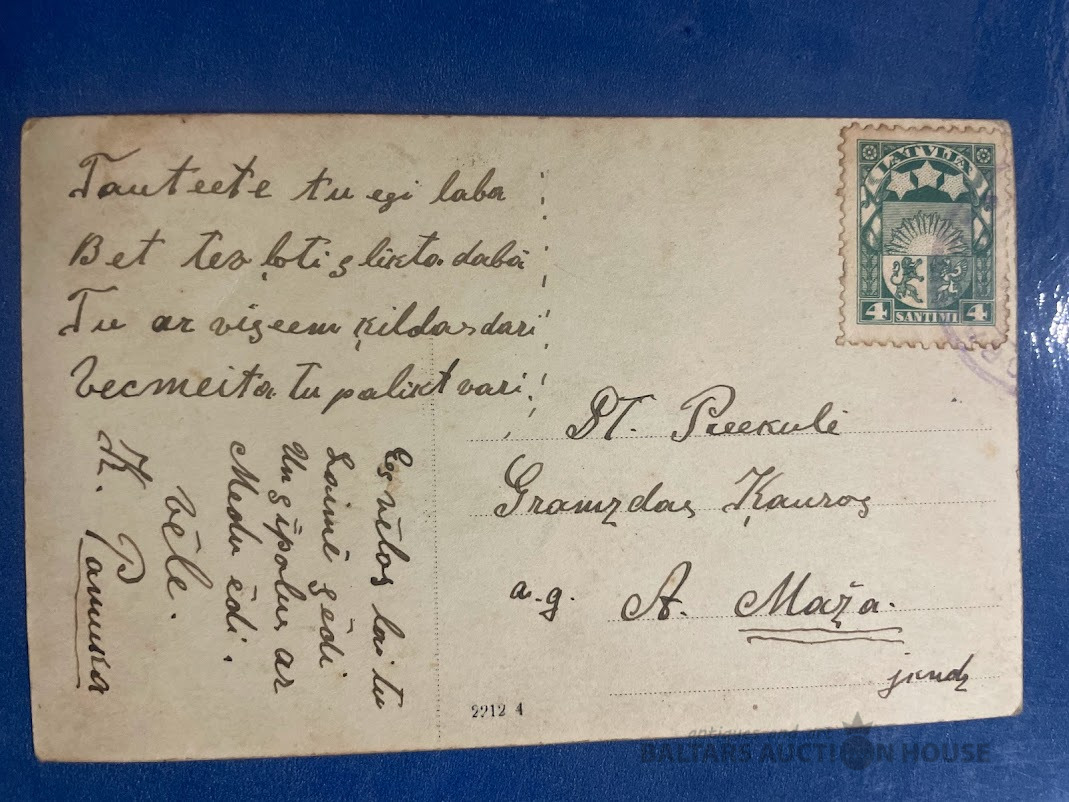 Tauteete tu egi laba
Bet tev ļoti slikta daba
Tu ar viseem ķildas dari
Vecmeita tu palikt vari.
Es vēlos lai tu
Laimē sēdi
Un sīpolus ar
Medu ēdi.
vēle.
K.
LATVIJA
4 SANTIMI 4
PT. Preekulē
Gramzdas Ķauros
a. g. A. Maža.
jkndz
2212 4
antiques and art
BALTARS AUCTION HOUSE